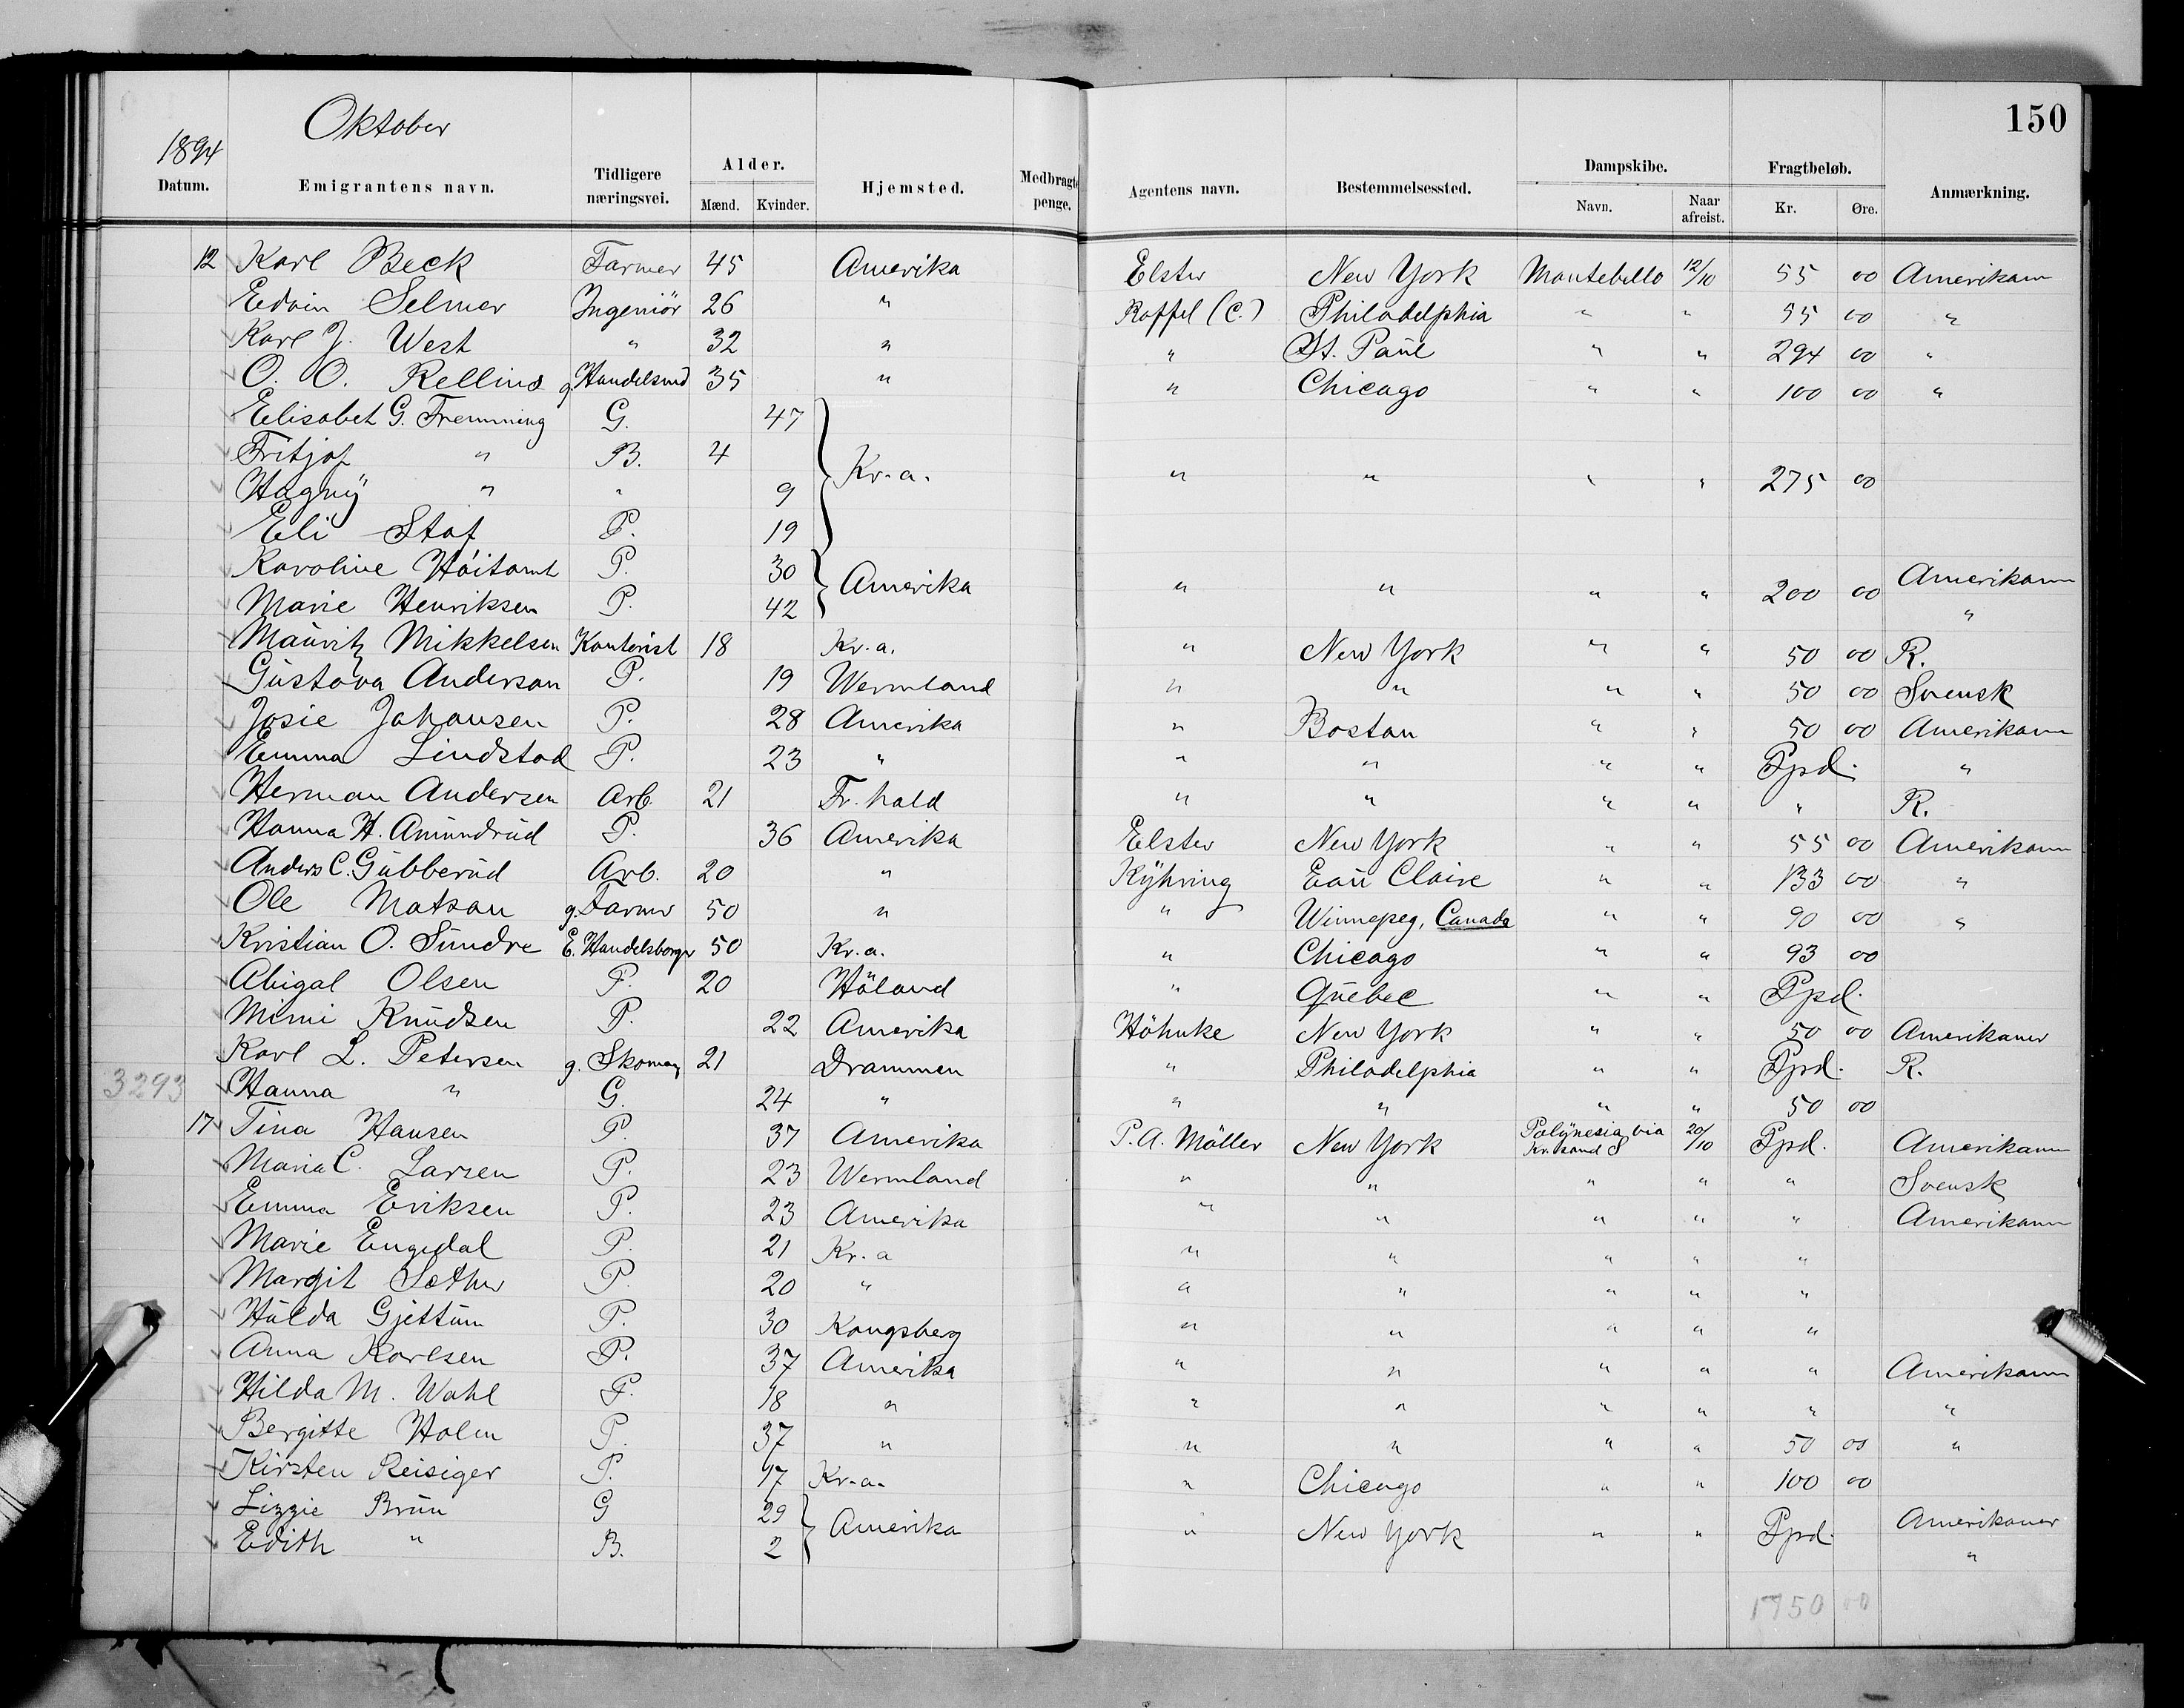 150
Oktober
1894
Datum. Emigrantens navn. Tidligere næringsvei. Alder. Mænd. Kvinder. Hjemsted. Medbragte penge. Agentens navn. Bestemmelsessted. Dampskibe. Navn. Naar afreist. Fragtbeløb. Kr. Øre. Anmærkning.
12 Karl Beck Farmer 45 Amerika Elster New York Montebello 12/10 55 00 Amerikaner
Edvin Selmer Ingeniör 26 " Roffel (C.) Philadelphia " " 55 00 "
Karl J. West " 32 " " St. Paul " " 294 00 "
O. O. Rellins g. Handelsmd 35 " " Chicago " " 100 00 "
Elisabet G. Fremming G. 47
Fritjof " B. 4 Kr.a. " " " " 275 00
Hagny " " 9
Eli Stof P. 19
Karoline Höitomt P. 30 Amerika " " " " 200 00 Amerikaner
Marie Henriksen P. 42 "
Mauritz Mikkelsen Kontorist 18 Kr.a. " New York " " 50 00 R.
Gustava Anderson P. 19 Wermland " " " " 50 00 Svensk
Josie Johansen P. 28 Amerika " Boston " " 50 00 Amerikaner
Emma Lindstad P. 23 " " " " " Ppd. "
Herman Andersen Arb. 21 Fr.hald " " " " " R.
Hanna H. Amundrud P. 36 Amerika Elster New York " " 55 00 Amerikaner
Anders C. Gubberud Arb. 20 " Kyhring Eau Claire " " 133 00 "
Ole Matson g. Farmer 50 " " Winnepeg, Canada " " 90 00 "
Kristian O. Sundre E. Handelsborger 50 Kr.a. " Chicago " " 93 00
Abigal Olsen P. 20 Höland " Quebec " " Ppd.
Mimi Knudsen P. 22 Amerika Höhnke New York " " 50 00 Amerikaner
Karl L. Petersen g. Skomag 21 Drammen " Philadelphia " " Ppd. R.
3293 Hanna " G. 24 " " " " " 50 00
17 Tina Hansen P. 37 Amerika P. A. Möller New York Polynesia via Kr.sand S 20/10 Ppd. Amerikaner
Maria C. Larsen P. 23 Wermland " " " " " Svensk
Emma Eriksen P. 23 Amerika " " " " " Amerikaner
Marie Engedal P. 21 Kr.a " " " " "
Margit Sæther P. 20 " " " " " "
Hulda Gjettum P. 30 Kongsberg " " " " "
Anna Karlsen P. 37 Amerika " " " " " Amerikaner
Hilda M. Wahl P. 18 " " " " " " "
Bergitte Holm P. 37 " " " " " 50 00 "
Kirsten Reisiger P. 17 Kr.a. " Chicago " " 100 00
Lizzie Brun G 29 Amerika " New York " " Ppd. Amerikaner
Edith " B. 2 "
1750 00